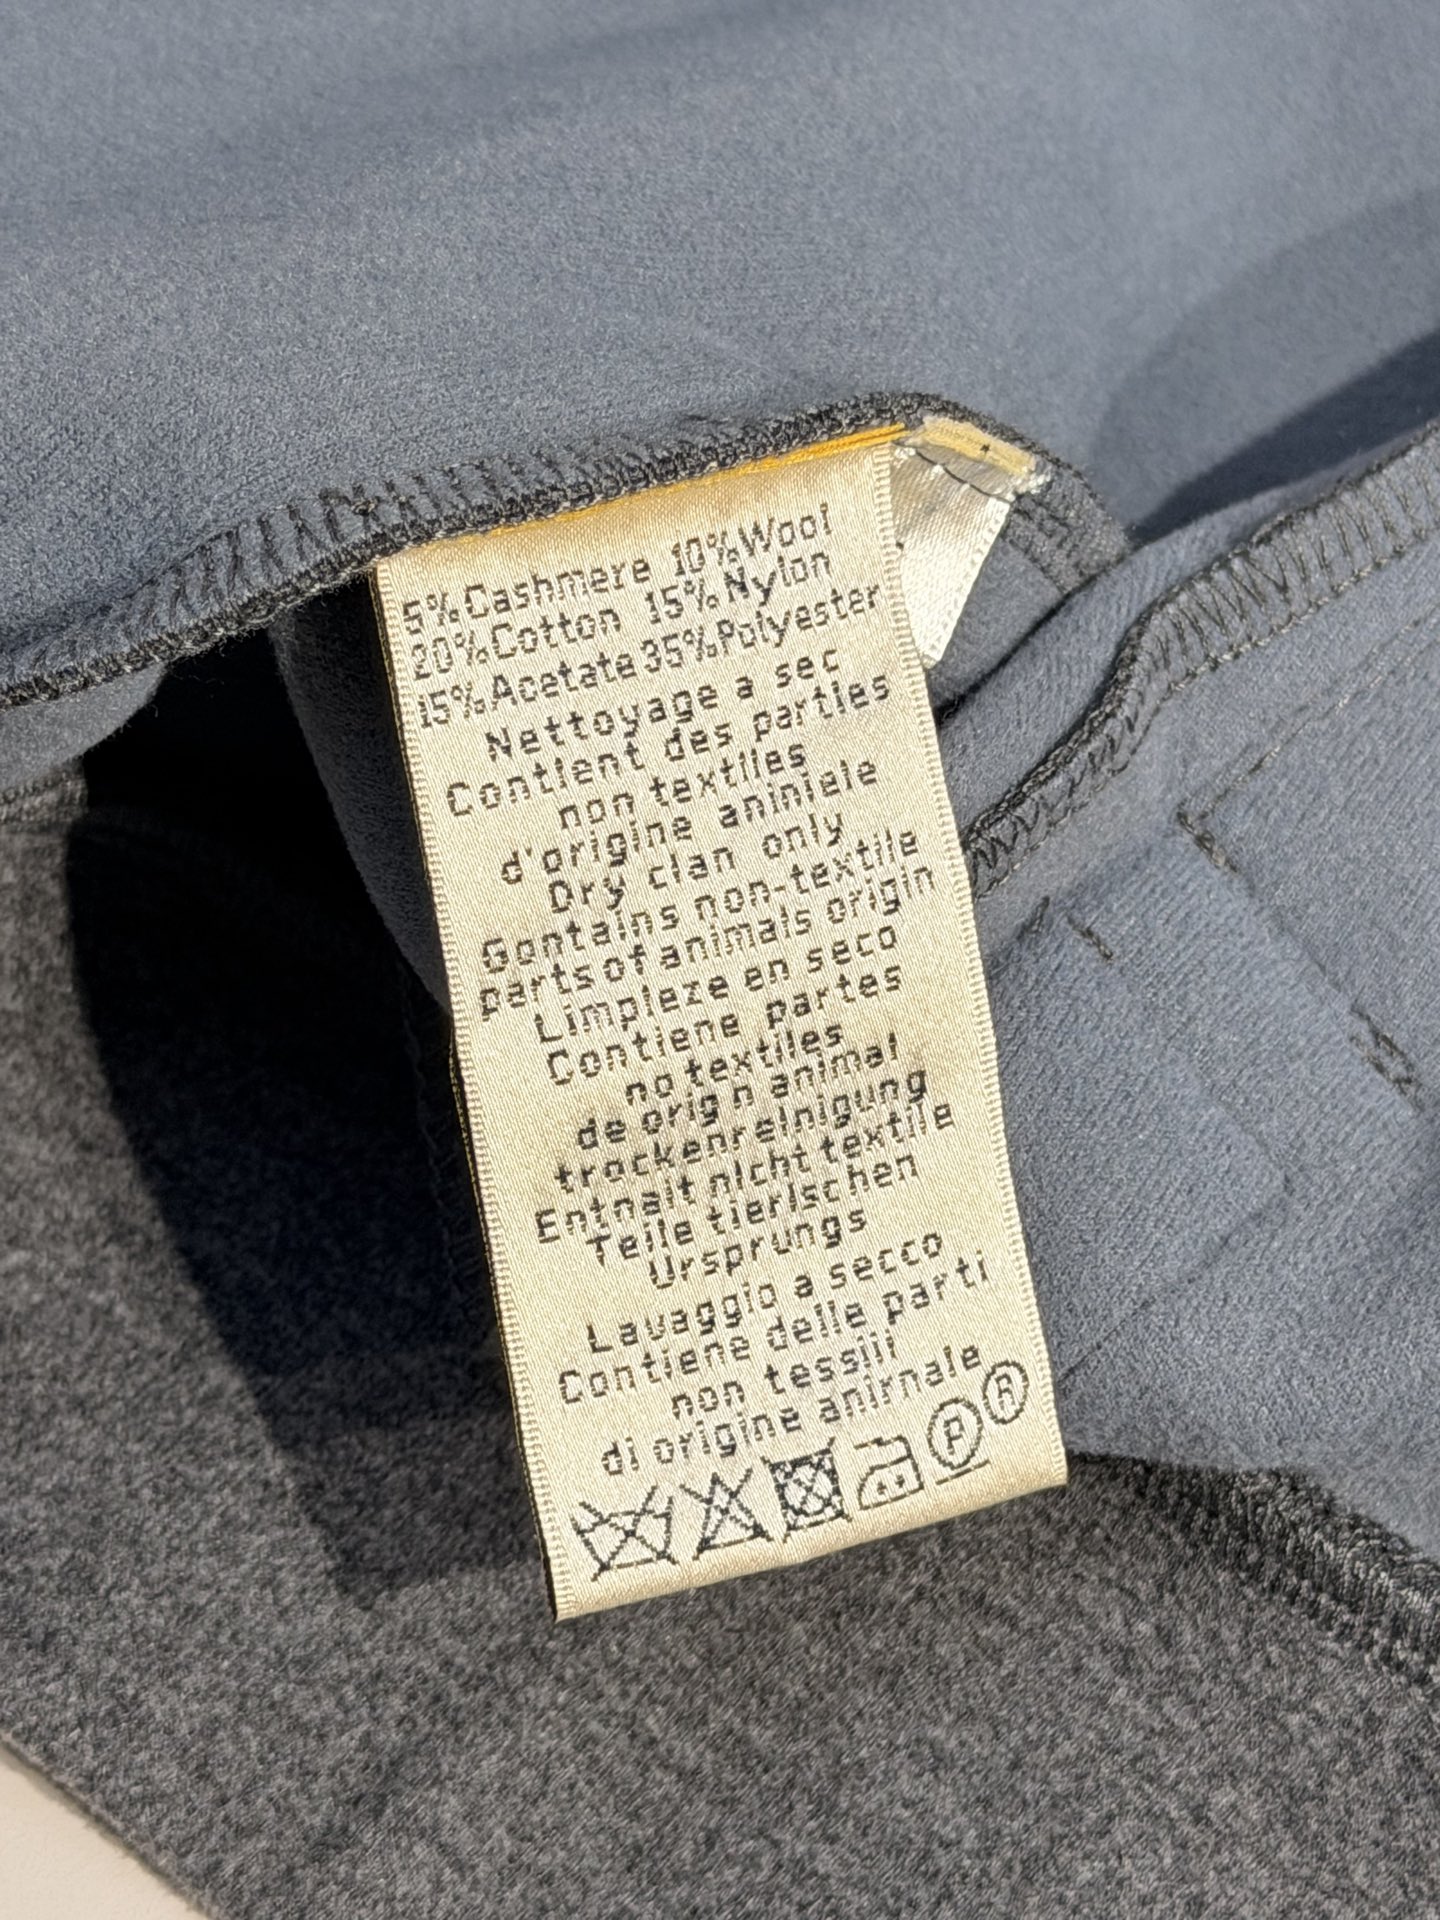 5%Cashmere 10%Wool
20%Cotton 15%Nylon
15%Acetate 35%Polyester
Nettoyage a sec
Contient des parties
non textiles
d'origine aniniale
Dry clan only
Gontains non-textile
parts of animals origin
Limpieze en seco
Contiene partes
no textiles
de orig n animal
trockenreinigung
Entnalt nicht textile
Teile tierischen
Ursprungs
Lavaggio a secco
Contiene delle parti
non tessili
di origine anirnale
P R